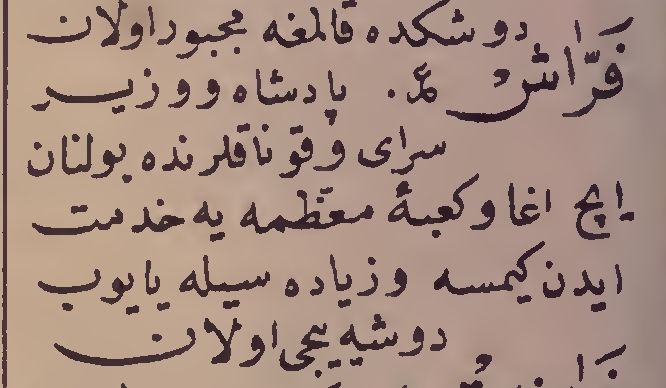 دوشكده قالمغه مجبور اولان
فَرَّاش عر. پادشاه ووزير
سراى وقوناقلرنده بولنان
ايچ اغا وكعبهٔ معظّمه يه خدمت
ايدن كيمسه وزياده سيله يايوب
دوشيه يجى اولان